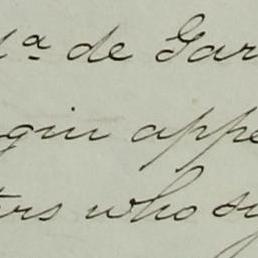 ª de Gar
gin appe
ers who sy